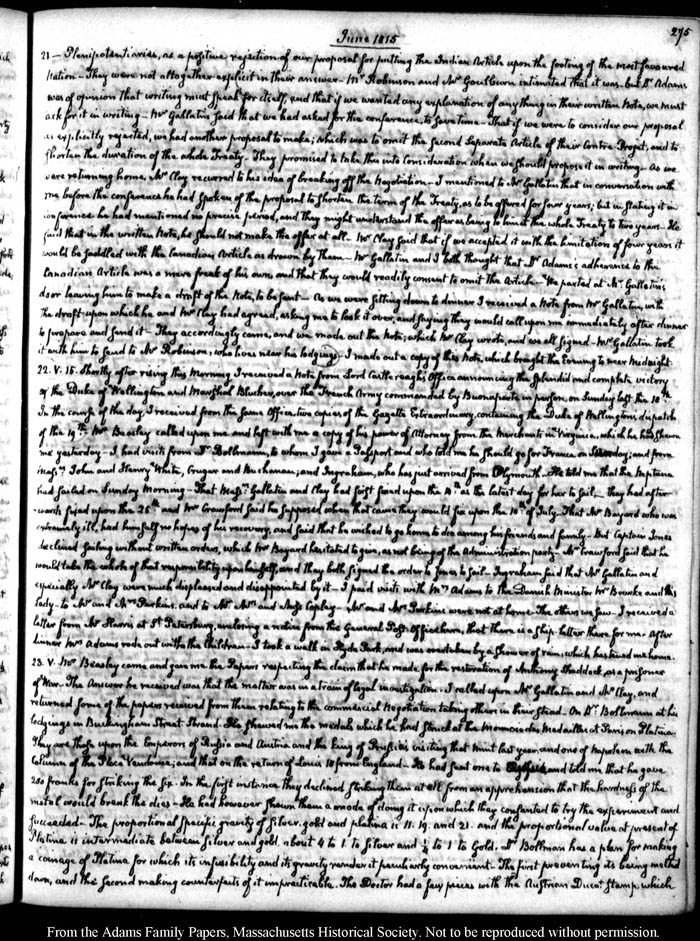 June 1815
275
21 — Plenipotentiaries, as a positive rejection of our proposal for putting the Indian Article upon the footing of the most favoured
Nation — They were not altogether explicit in their answer — Mr Robinson and Mr Goulburn intimated that it was, but Dr Adams
was of opinion that writing must speak for itself, and that if we wanted any explanation of any thing in their written Note, we must
ask for it in writing — Mr Gallatin said that we had asked for the conference, to save time — That if we were to consider our proposal
as explicitly rejected, we had another proposal to make; which was to omit the second separate Article of their Contre-Projet, and to
shorten the duration of the whole Treaty — They promised to take this into consideration when we should propose it in writing — As we
were returning home, Mr Clay recurred to his idea of breaking off the Negotiation — I mentioned to Mr Gallatin that in conversation with
me before the conference he had spoken of the proposal to shorten the term of the Treaty, as to be offered for four years; but in stating it in
conference he had mentioned no precise period, and they might understand the offer as being to limit the whole Treaty to two years — He
said that in the written Note, he should not make the offer at all. Mr Clay said that if we accepted it with the limitation of four years it
would be saddled with the Canadian Article as drawn by them — Mr Gallatin and I both thought that Dr Adams's adherence to the
Canadian Article was a mere freak of his own, and that they would readily consent to omit the Article — We parted at Mr Gallatin's
door leaving him to make a draft of the Note, to be sent — As we were sitting down to dinner I received a Note from Mr Gallatin, with
the draft upon which he and Mr Clay had agreed, asking me to look it over, and saying they would call upon me immediately after dinner
to prepare and send it — They accordingly came, and we made out the Note, which Mr Clay wrote, and we all signed — Mr Gallatin took
it with him to send to Mr Robinson, who lives near his lodgings. I made out a copy of this Note, which brought the Evening to near Midnight.
22. V. 15. Shortly after rising this Morning I received a Note from Lord Castlereagh's Office announcing the splendid and complete victory
of the Duke of Wellington and Marshal Blucher, over the French Army commanded by Buonaparte in person, on Sunday last the 18th
In the course of the day, I received from the same Office, two copies of the Gazette Extraordinary, containing the Duke of Wellington's dispatch
of the 19th. Mr Beasley called upon me and left with me a copy of his power of Attorney from the Merchants in Virginia, which he had shewn
me yesterday — I had visits from Dr Bollmann, to whom I gave a Passport and who told me he should go for France on; and from
Messrs John and Henry White, Cruger and Buchanan; and Ingraham, who has just arrived from Plymouth. He told me that the Neptune
had sailed on Sunday Morning — That Messrs Gallatin and Clay had first fixed upon the as the latest day for her to sail — They had after-
wards fixed upon the 25th and Mr Crawford said he supposed when that came they would fix upon the 10th of July. That Mr Bayard who was
extremely ill, had himself no hopes of his recovery, and said that he wished to go home to die among his friends and family — But Captain Jones
declined sailing without written orders, which Mr Bayard hesitated to give, as not being of the administration party — Mr Crawford said that he
would take the whole of that responsibility upon himself, and they both signed the order to Jones to sail — Ingraham said that Mr Gallatin and
especially Mr Clay were much displeased and disappointed by it — I paid visits with Mrs Adams to the Danish Minister Mr Bourke and his
Lady — to Mr and Mrs Perkins, and to Mr Mrs and Miss Copley — Mr and Mrs Perkins were not at home. The others we saw — I received a
letter from Mr Harris at St Petersburg, enclosing a notice from the General Post Office here, that there is a ship letter there for me. After
dinner Mrs Adams rode out with the children — I took a walk in Hyde Park, and was overtaken by a shower of rain, which hastened me home.
23. V. Mr Beasley came and gave me the Papers respecting the claim that he made for the restoration of Anthony Shaddock, as a prisoner
of War. The Answer he received was that the matter was in a train of legal investigation. I called upon Mr Gallatin and Mr Clay, and
returned some of the papers received from them relating to the commercial Negotiation taking others in their stead. On Dr Bollmann at his
lodgings in Buckingham Street Strand. He shewed me the medals which he had struck at the Monnoie des Medailles at Paris on Platina.
They are those upon the Emperors of Russia and Austria and the King of Prussia's visiting that Mint last year, and one of Napoleon with the
Column of the Place Vendome; and that on the return of Louis 18 from England — He had sent one to and told me that he gave
280 franks for striking the six. In the first instance they declined striking them at all from an apprehension that the hardness of the
metal would break the dies — He had however shewn them a mode of doing it upon which they consented to try the experiment and
succeeded — The proportional specific gravity of silver, gold and platina is 11. 19. and 21. and the proportional value at present of
Platina is intermediate between silver and gold, about 4 to 1 to silver and ¼ to 1 to Gold. Dr Bollman has a plan for making
a coinage of Platina for which its infusibility and its gravity render it peculiarly convenient. The first preventing its being melted
down, and the second making counterfeits of it impracticable. The Doctor had a few pieces with the Austrian Ducat stamp, which
From the Adams Family Papers, Massachusetts Historical Society. Not to be reproduced without permission.